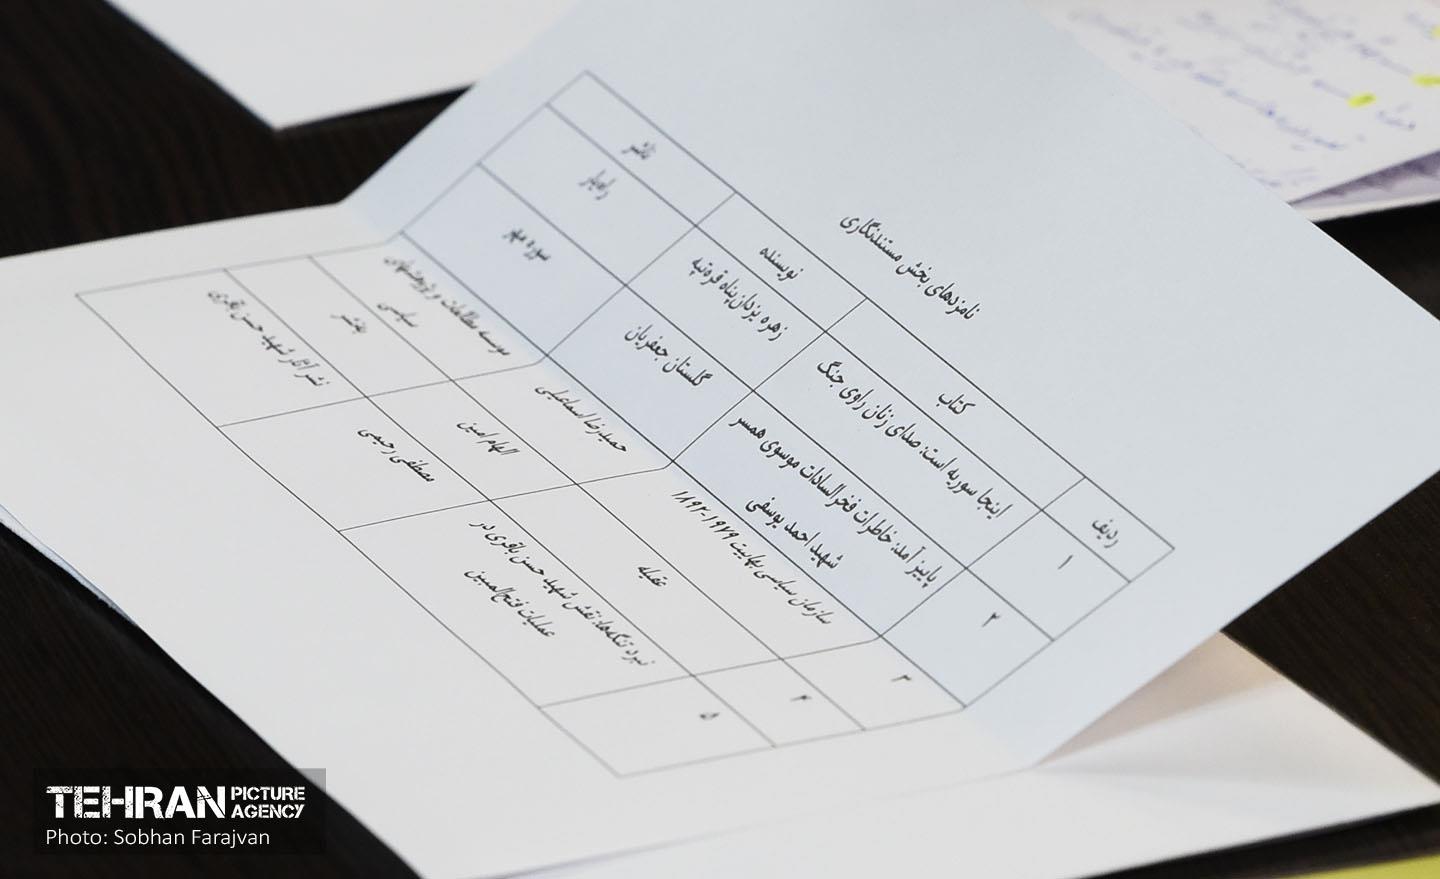 نامزدهای بخش مستندنگاری
ردیف کتاب نویسنده ناشر
۱ اینجا سوریه است: صدای زنان راوی جنگ زهره یزدان‌پناه قره‌تپه راه‌یار
۲ پاییز آمد: خاطرات فخرالسادات موسوی همسر شهید احمد یوسفی گلستان جعفریان سوره مهر
۳ سازمان سیاسی بهاییت ۱۹۷۹-۱۸۹۲ حمیدرضا اسماعیلی موسسه مطالعات و پژوهشهای سیاسی
۴ عقیله الهام امین به‌نشر
۵ نبرد تنگه‌ها: نقش شهید حسن باقری در عملیات فتح‌المبین مصطفی رحیمی نشر آثار شهید حسن باقری
TEHRAN PICTURE AGENCY
Photo: Sobhan Farajvan